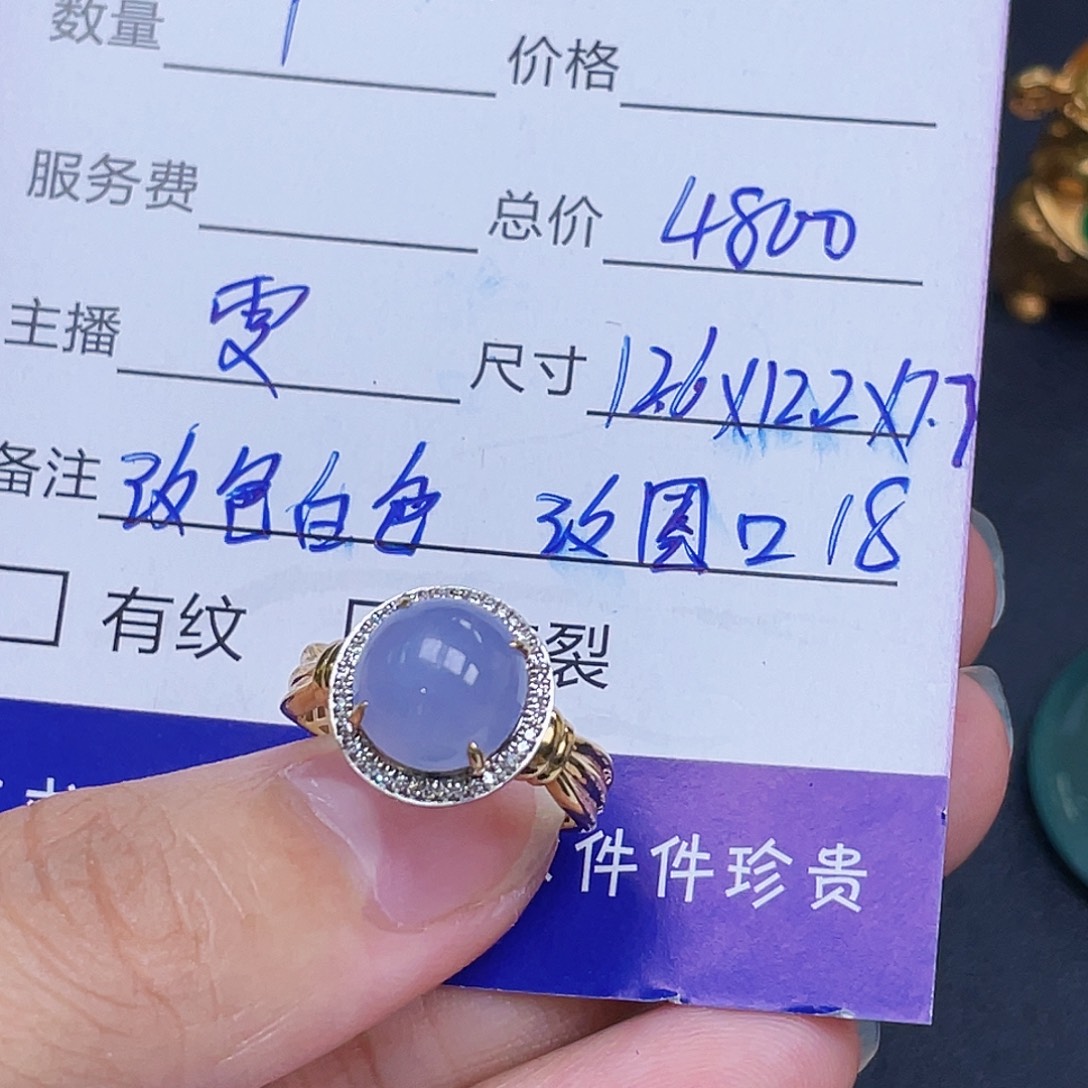 数量 1 价格
服务费 总价 4800
主播 雯 尺寸 12.6X12.2X7.7
备注 改色白色 改圆口18
有纹 裂
件件珍贵